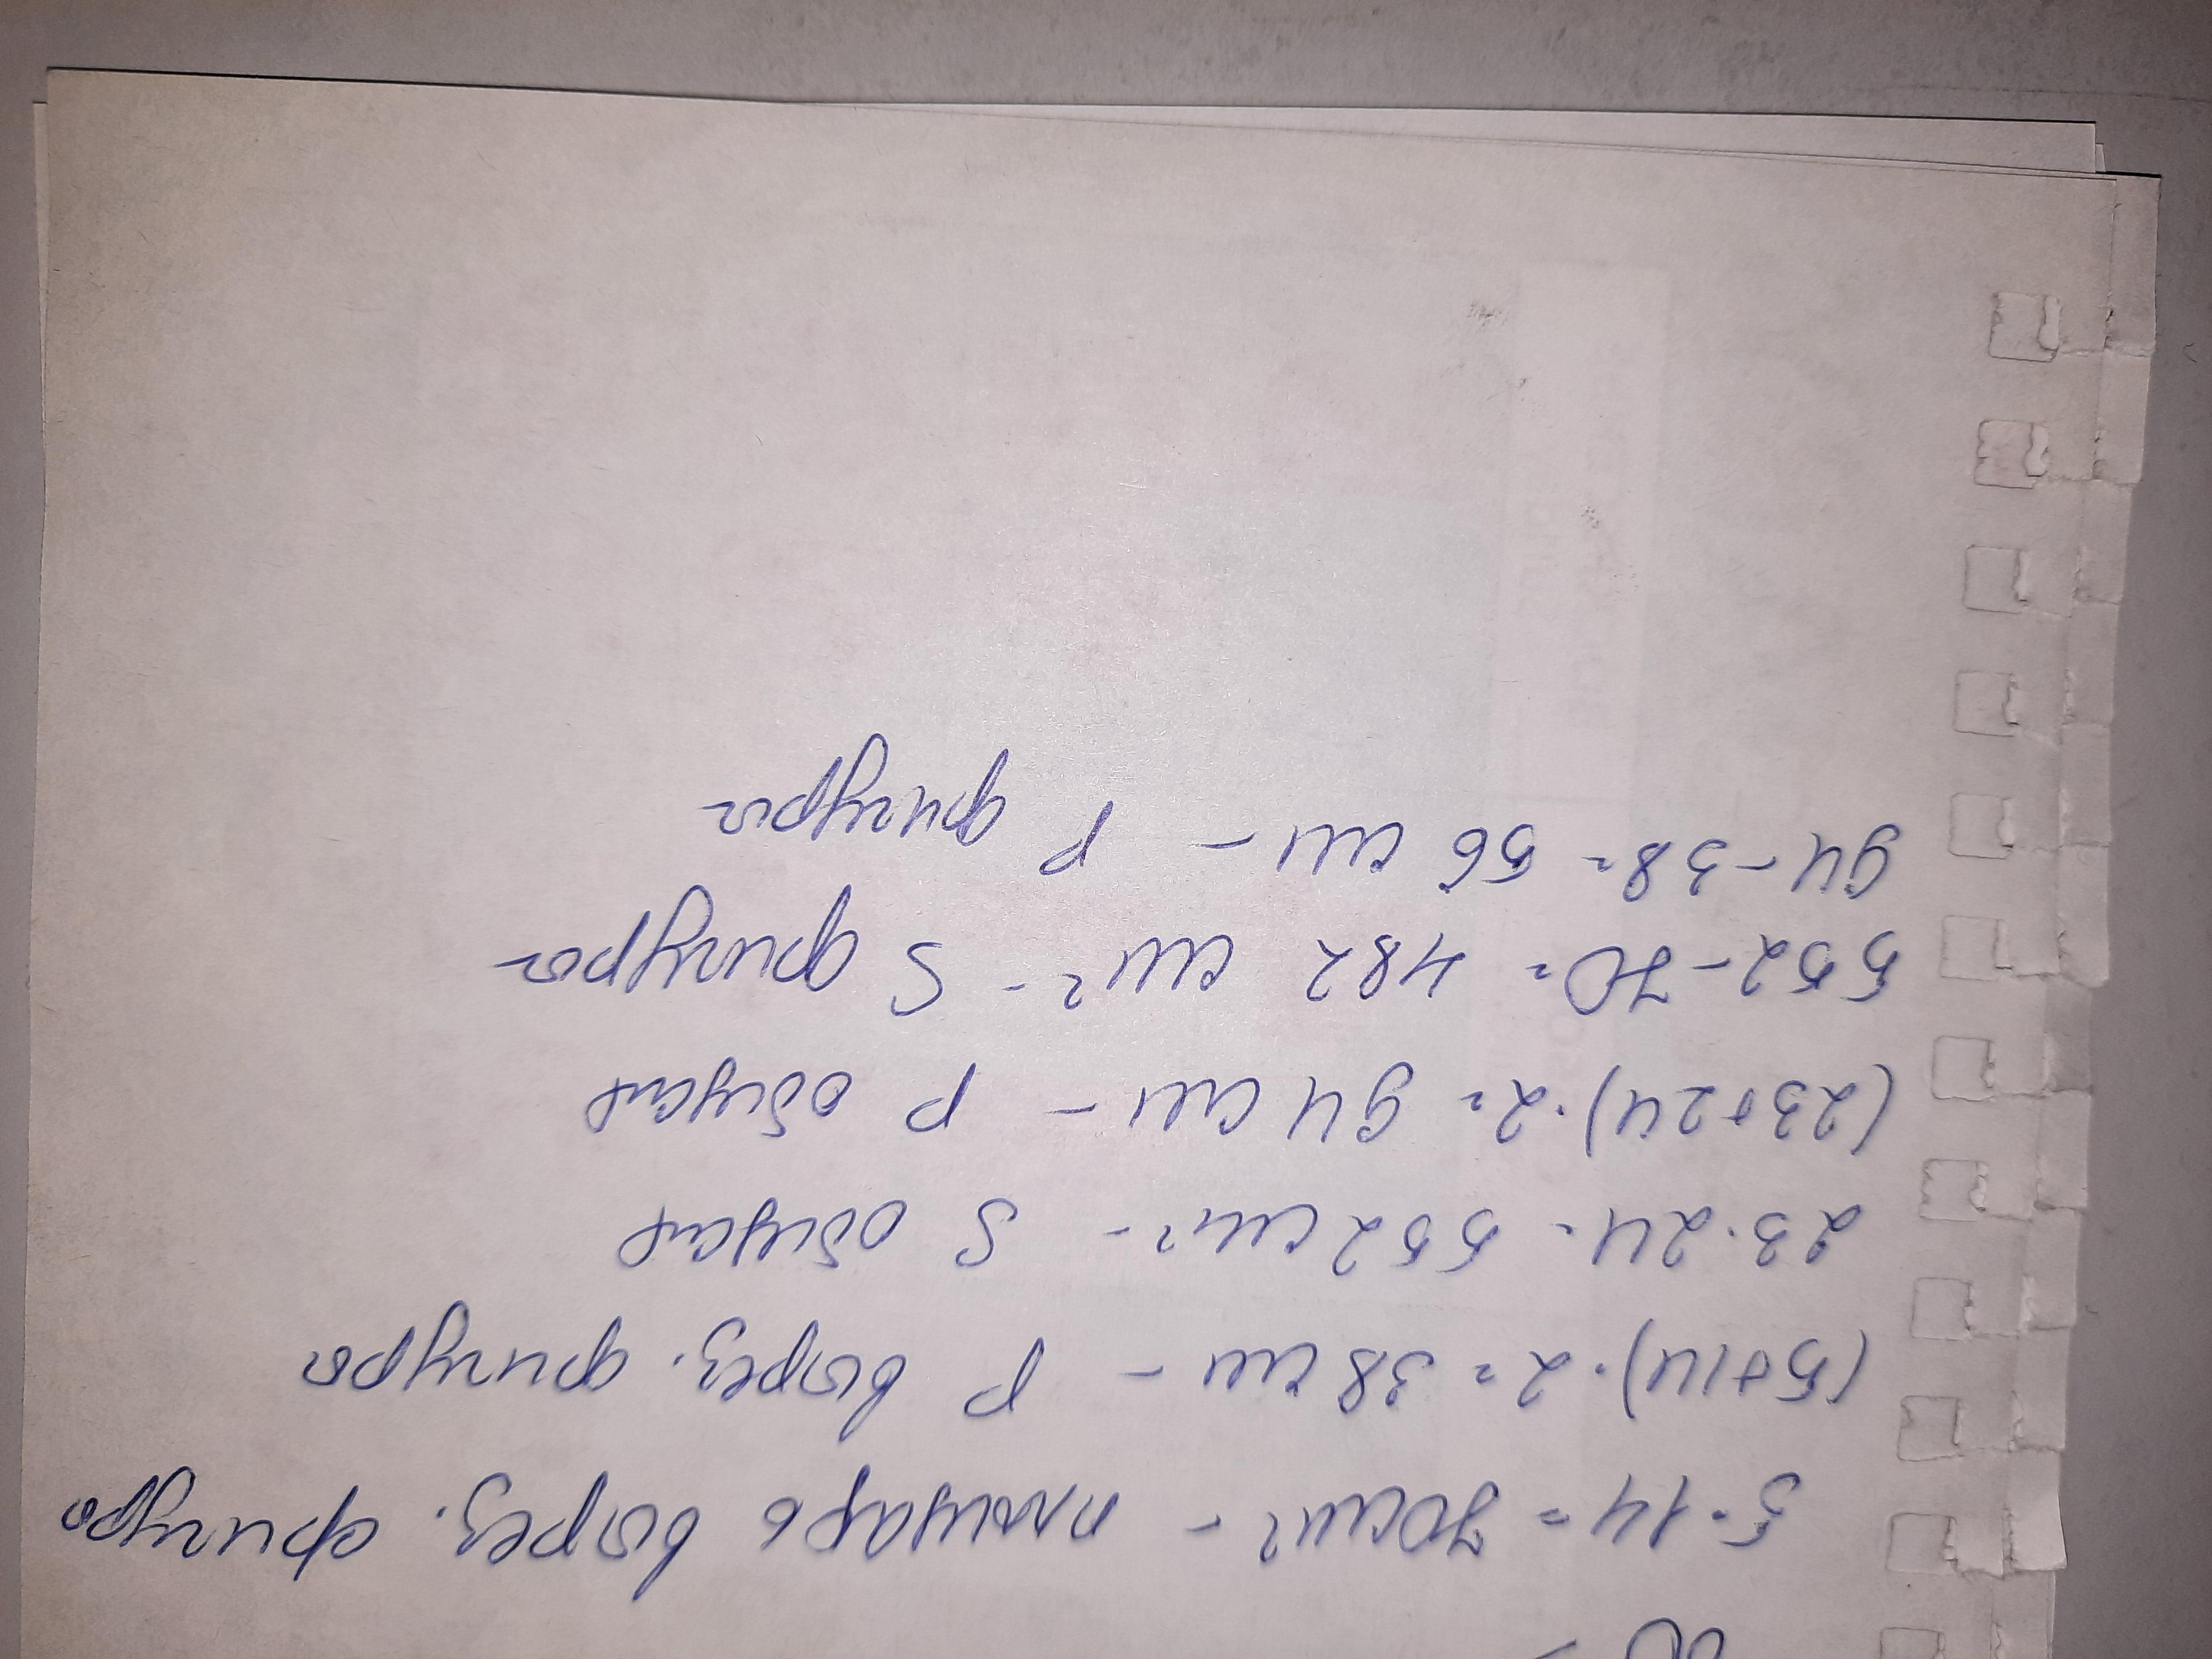 5·14 = 70 см² - площадь вырез. фигуры
(5+14)·2 = 38 см - P вырез. фигуры
23·24 = 552 см² - S общая
(23+24)·2 = 94 см - P общая
552-70 = 482 см² - S фигуры
94-38 = 56 см - P фигуры